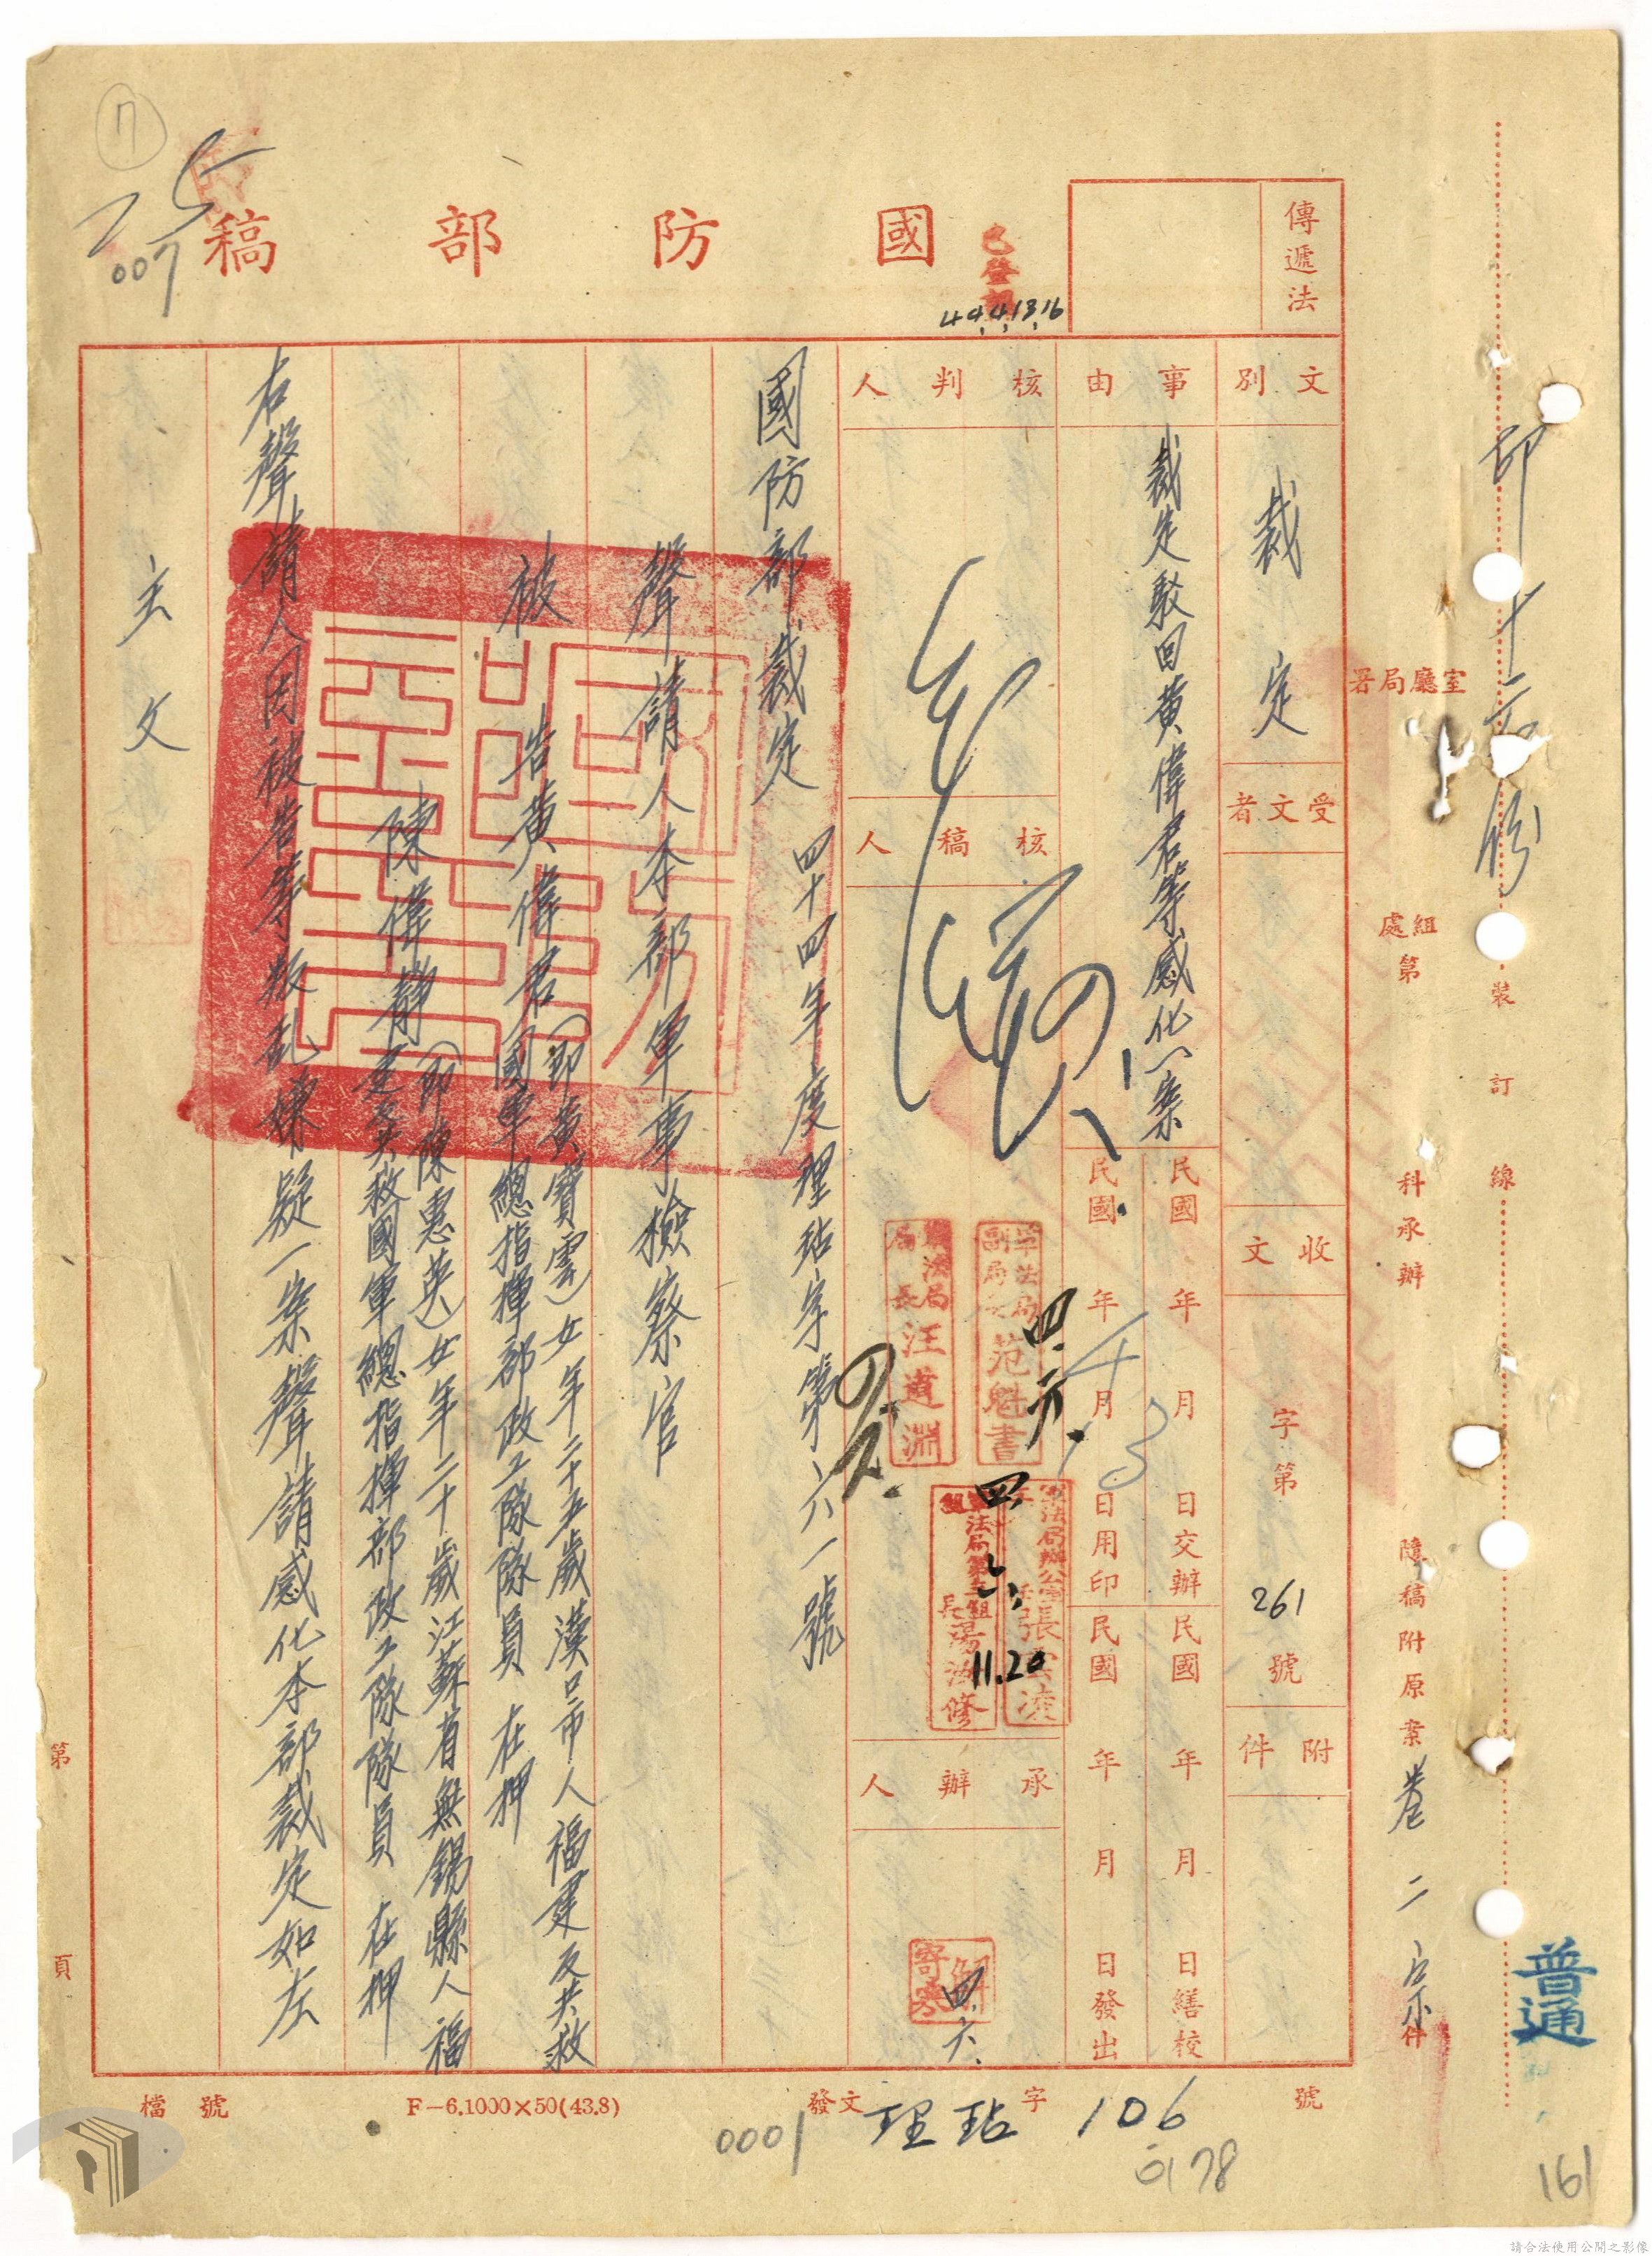 普通
印十二份
裝訂線
室廳局署
組處第
科承辦
隨稿附原案卷二宗件
傳遞法
國防部稿
44.4.13.16
25
007
7
文別
裁定
受文者
收文
字第261號
附件
事由
裁定駁回黃偉君等感化一案
民國年月日交辦
民國年月日繕校
民國年月日用印
4 13
民國年月日發出
核判人
核稿人
軍法局副局長范魁書
四.六.
軍法局局長汪道淵
四.六.
11.20
承辦人
四.六.
國防部裁定
四十四年度理玷字第六一號
聲請人本部軍事檢察官
被告黃偉君(即黃寶雲)女年二十五歲漢口市人福建反共救
國軍總指揮部政工隊隊員 在押
陳偉靜(即陳惠英)女年二十歲江蘇省無錫縣人福
建反共救國軍總指揮部政工隊隊員 在押
右聲請人因被告等叛亂嫌疑一案聲請感化本部裁定如左
主文
第頁
檔號
F-6.1000×50(43.8)
發文理玷字106號
0001
0178
161
請合法使用公開之影像